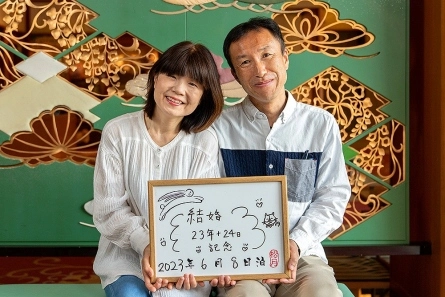 結婚
23年+24日
記念
2023年6月8日泊